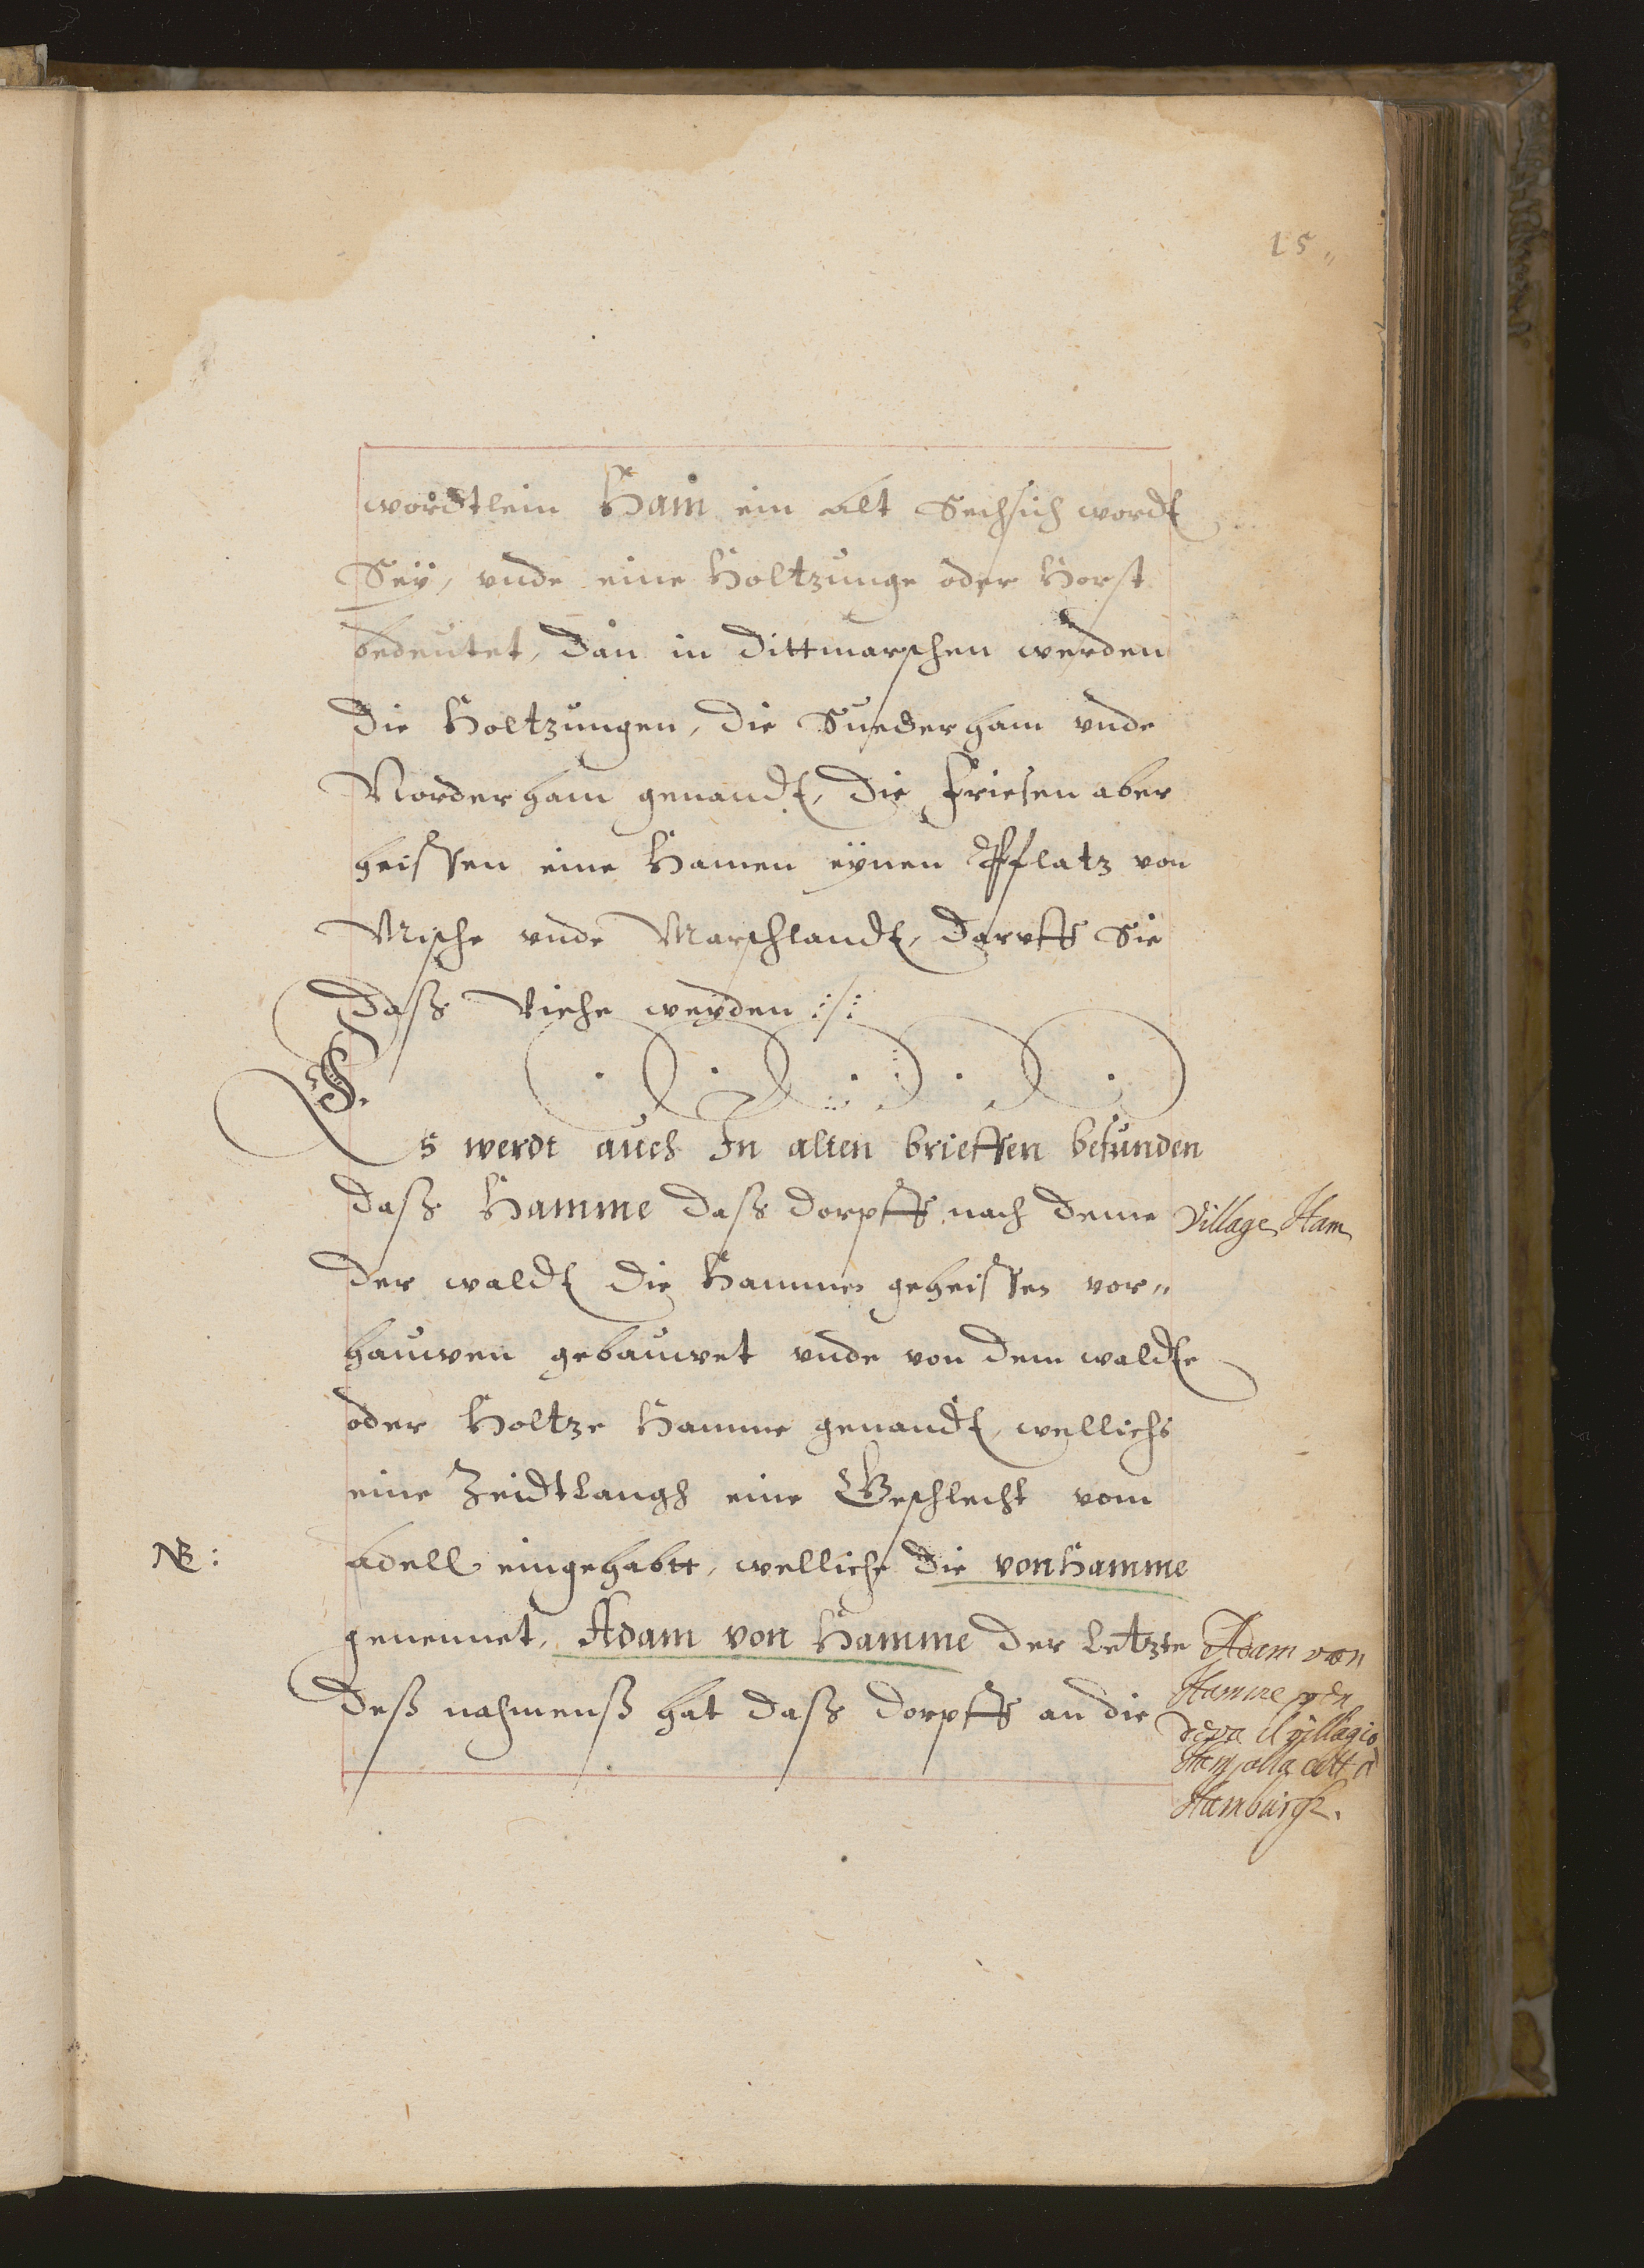 15
wordtlein Ham ein alt Sechsich wordt
Seÿ, vnde eine Holtzunge oder Horst
bedeutet, Dan in Dittmarschen werden
Die Holtzungen, Die Suederham vnde
Norderham genandt, Die Friesen aber
heissen eine Hamen eÿnen Pflatz von
Wische vnde Marschlandt, Daruff Sie
Daß Viehe weyden :/:
Es werdt auch In alten brieffen befunden
Daß Hamme Daß Dorpff nach deme
Village Ham
Der waldt Die Hamme geheissen vor„
hauwen gebauwet vnde von dem waldte
oder Holtze Hamme genandt, wellichs
eine Zeidtlangh eine Geschlecht vom
NB:
Adell eingehabtt, welliche Die von Hamme
genennet, Adam von Hamme Der Letzte
Deß nahmenß hat Daß Dorpff an die
Adam von
Hamme
il villagio
Ham alla citta
Hamburgh.